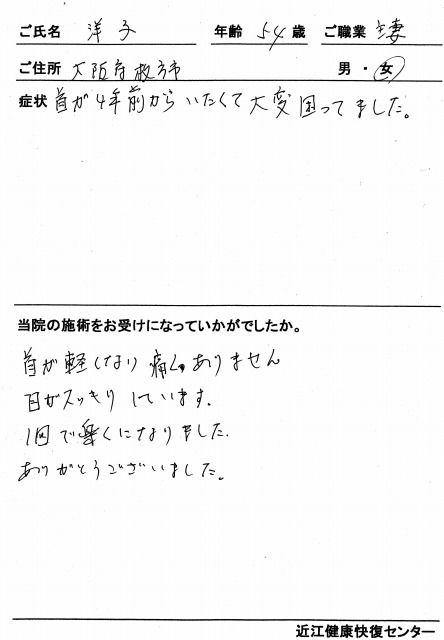 ご氏名 洋子 年齢 54 歳 ご職業 主妻
ご住所 大阪府枚方市 男・女
症状 首が4年前からいたくて大変困ってました。
当院の施術をお受けになっていかがでしたか。
首が軽くなり痛くありません
目がスッキリしています.
1回で楽くになりました.
ありがとうございました。
近江健康快復センター